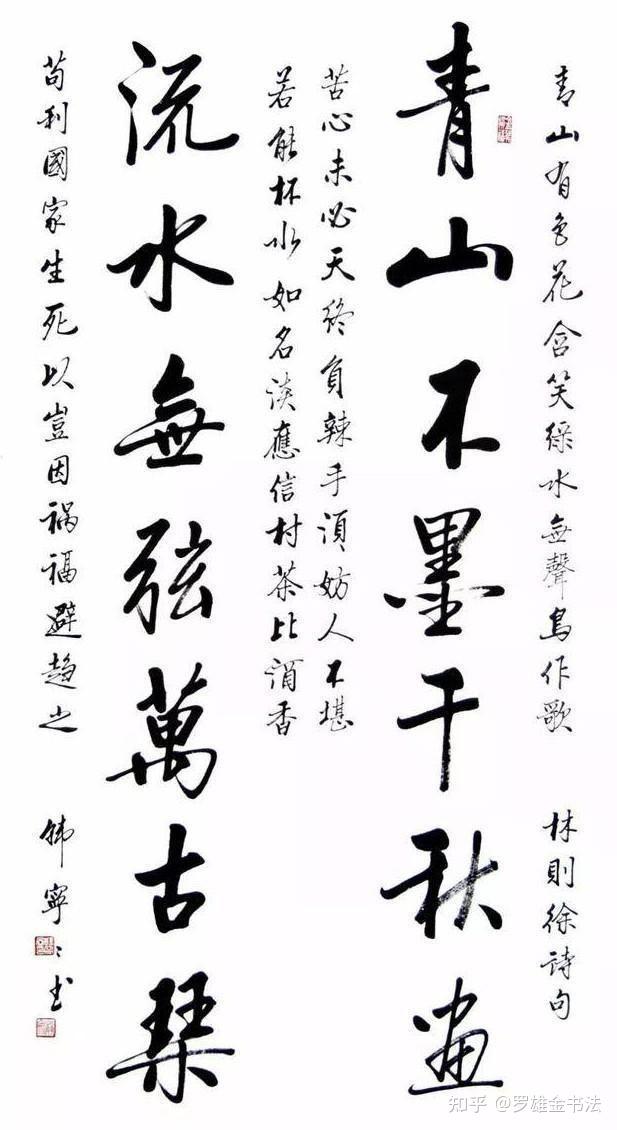 青山有色花含笑綠水無聲鳥作歌 林則徐詩句
青山不墨千秋畫
苦心未必天終負辣手須妨人不堪
若能杯水如名淡應信村茶比酒香
流水無弦萬古琴
苟利國家生死以豈因禍福避趨之 韩寧〻书
知乎 @罗雄金书法